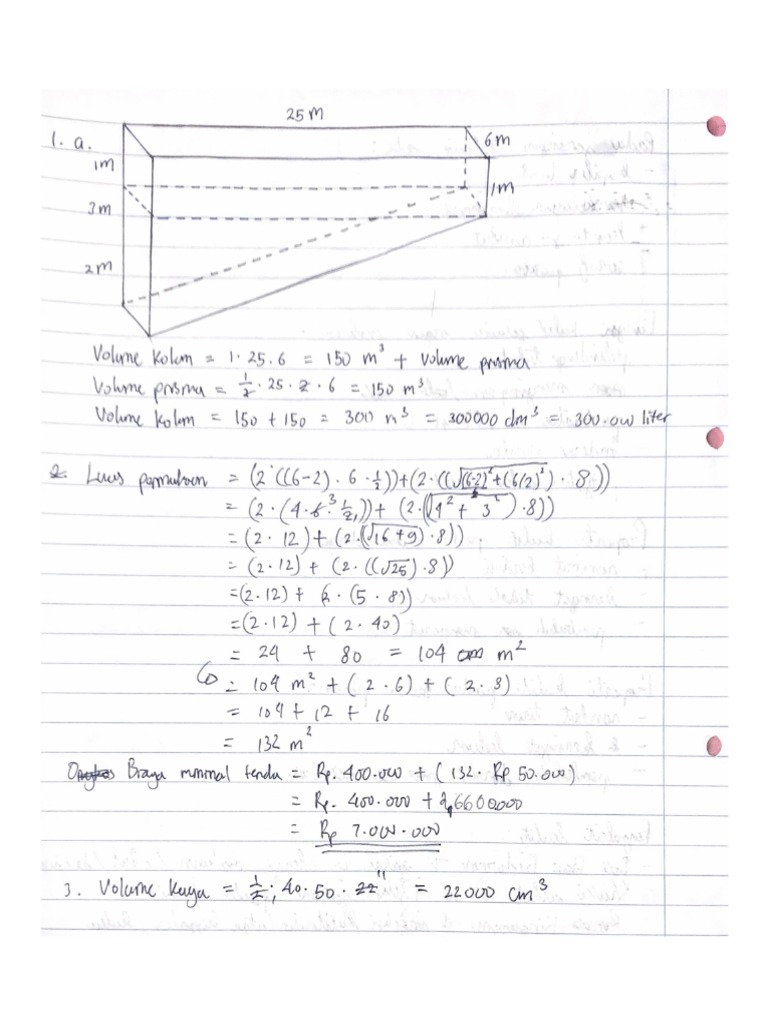 25 M
1. a.
6 m
1m
1m
3m
2m
Volume kolam = 1 · 25 . 6 = 150 m³ + volume prisma
Volume prisma = 1/2 · 25 · 2 · 6 = 150 m³
Volume kolam = 150 + 150 = 300 m³ = 300000 dm³ = 300.000 liter
2. Luas permukaan = (2·((6-2) · 6 · 1/2))+(2·((√(6-2)²+(6/2)²) · 8))
= (2 · (4 · 6 3 1/2 1))+ (2·((√4² + 3²)·8))
= (2 · 12) + (2·(√16+9)·8))
= (2·12) + (2·((√25)·8))
=(2·12)+ (2·(5 · 8))
=(2·12) + (2 · 40)
= 24 + 80 = 104 m²
= 104 m² + (2 · 6) + (2 · 8)
= 104 + 12 + 16
= 132 m²
Biaya minimal tenda = Rp. 400.000 + (132 · Rp 50.000)
= Rp. 400.000 + Rp 6600.000
= Rp 7.000.000
3. Volume kayu = 1/2 · 40 · 50 · 22 11 = 22000 cm³